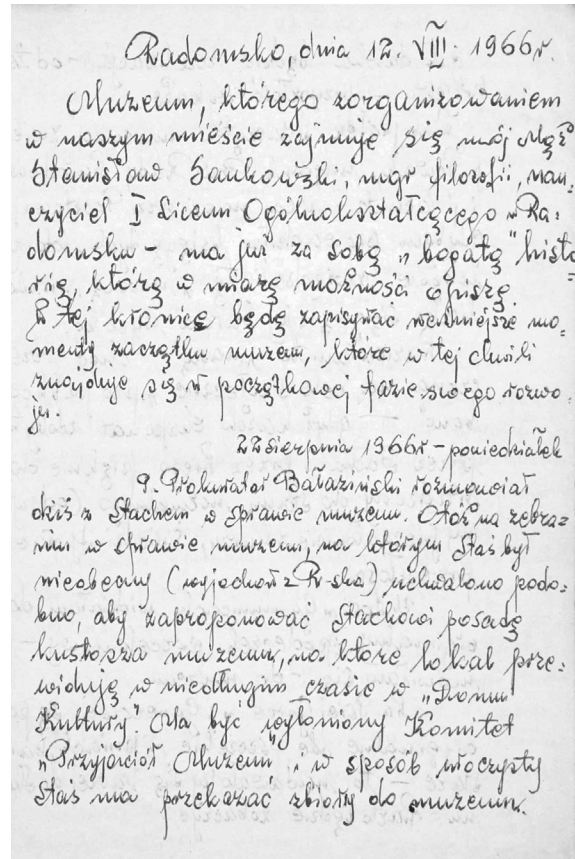 Radomsko, dnia 12. VIII. 1966r.
Muzeum, którego zorganizowaniem
w naszym mieście zajmuje się mój Mąż
Stanisław Sankowski, mgr filozofii, nau-
czyciel I Liceum Ogólnokształcącego w Ra-
domsku - ma już za sobą „bogatą" histo
rię, którą w miarę możności opiszę.
W tej kronice będę zapisywać ważniejsze mo-
menty zaczątku muzeum, które w tej chwili
znajduje się w początkowej fazie swego rozwo-
ju.
22 sierpnia 1966r - poniedziałek
P. Prokurator Bałaziński rozmawiał
dziś z Stachem w sprawie muzeum. Otóż na zebra-
niu w sprawie muzeum, na którym Staś był
nieobecny (wyjechał z R-ska) uchwalono podo-
bno, aby zaproponować Stachowi posadę
kustosza muzeum, na które lokal prze-
widują w niedługim czasie w „Domu
Kultury". Ma być wyłoniony Komitet
„Przyjaciół Muzeum", w sposób uroczysty
Staś ma przekazać zbiory do muzeum.